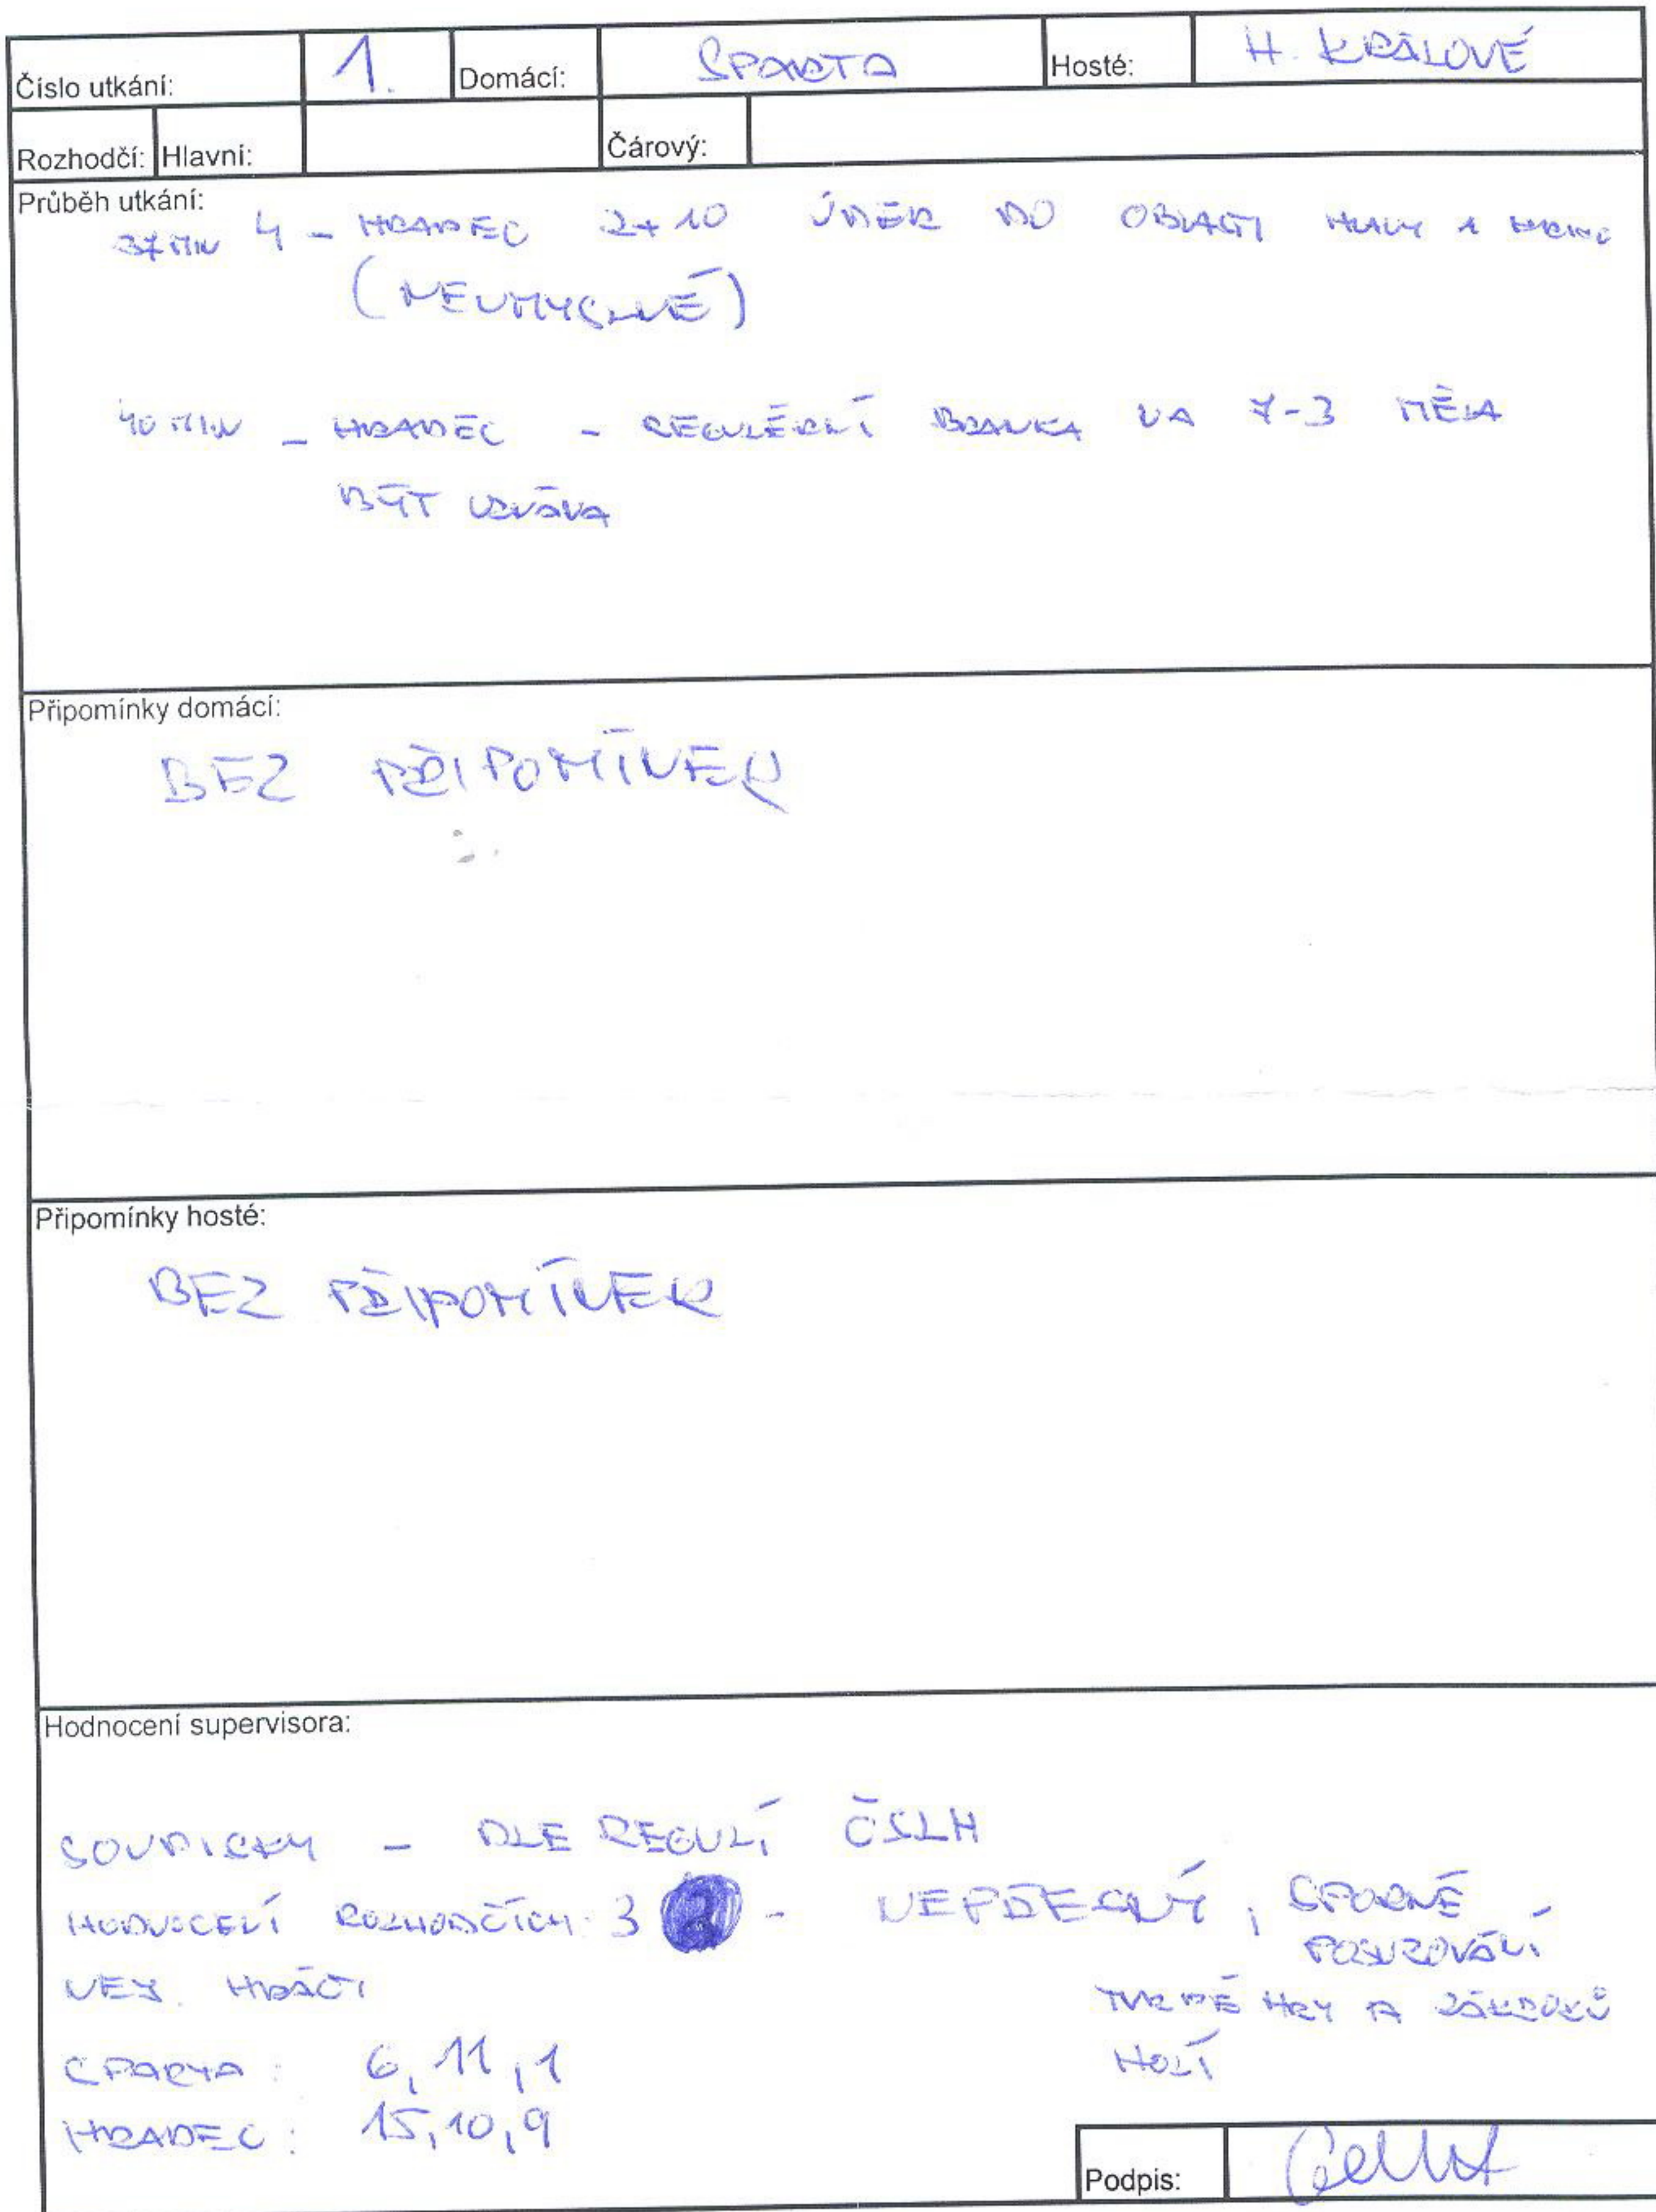 Číslo utkání: 1. Domácí: SPARTA Hosté: H. KRÁLOVÉ
Rozhodčí: Hlavní: Čárový:
Průběh utkání:
37 MIN 4 - HRADEC 2+10 ÚDER DO OBLASTI HLAVY A KRKU
(NEÚMYSLNÉ)
40 MIN - HRADEC - REGULÉRNÍ BRANKA NA 7-3 MĚLA
BÝT UZNÁNA
Připomínky domácí:
BEZ PŘIPOMÍNEK
Připomínky hosté:
BEZ PŘIPOMÍNEK
Hodnocení supervisora:
SOUPISKY - DLE REGULÍ ČSLH
HODNOCENÍ ROZHODČÍCH: 3 - NEPŘESNÝ, SPORNÉ
POSUZOVÁNÍ
NEJ. HRÁČI
TVRDÉ HRY A ZÁKROKŮ
HOLÍ
SPARTA: 6, 11, 1
HRADEC: 15, 10, 9
Podpis: